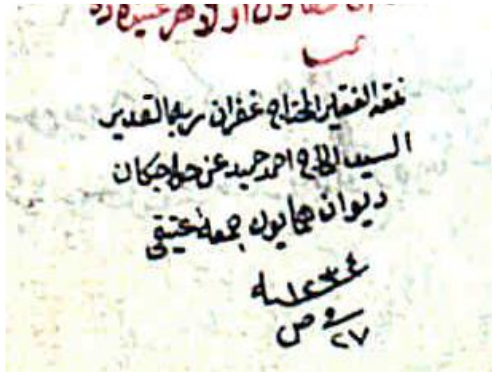 نمقه الفقير المحتاج غفران ربه القدير
السيد الحاج احمد حميد عن خواجكان
ديوان همايون جمعه عتيقى
سنه ١٢٣٤
٢٧ ص